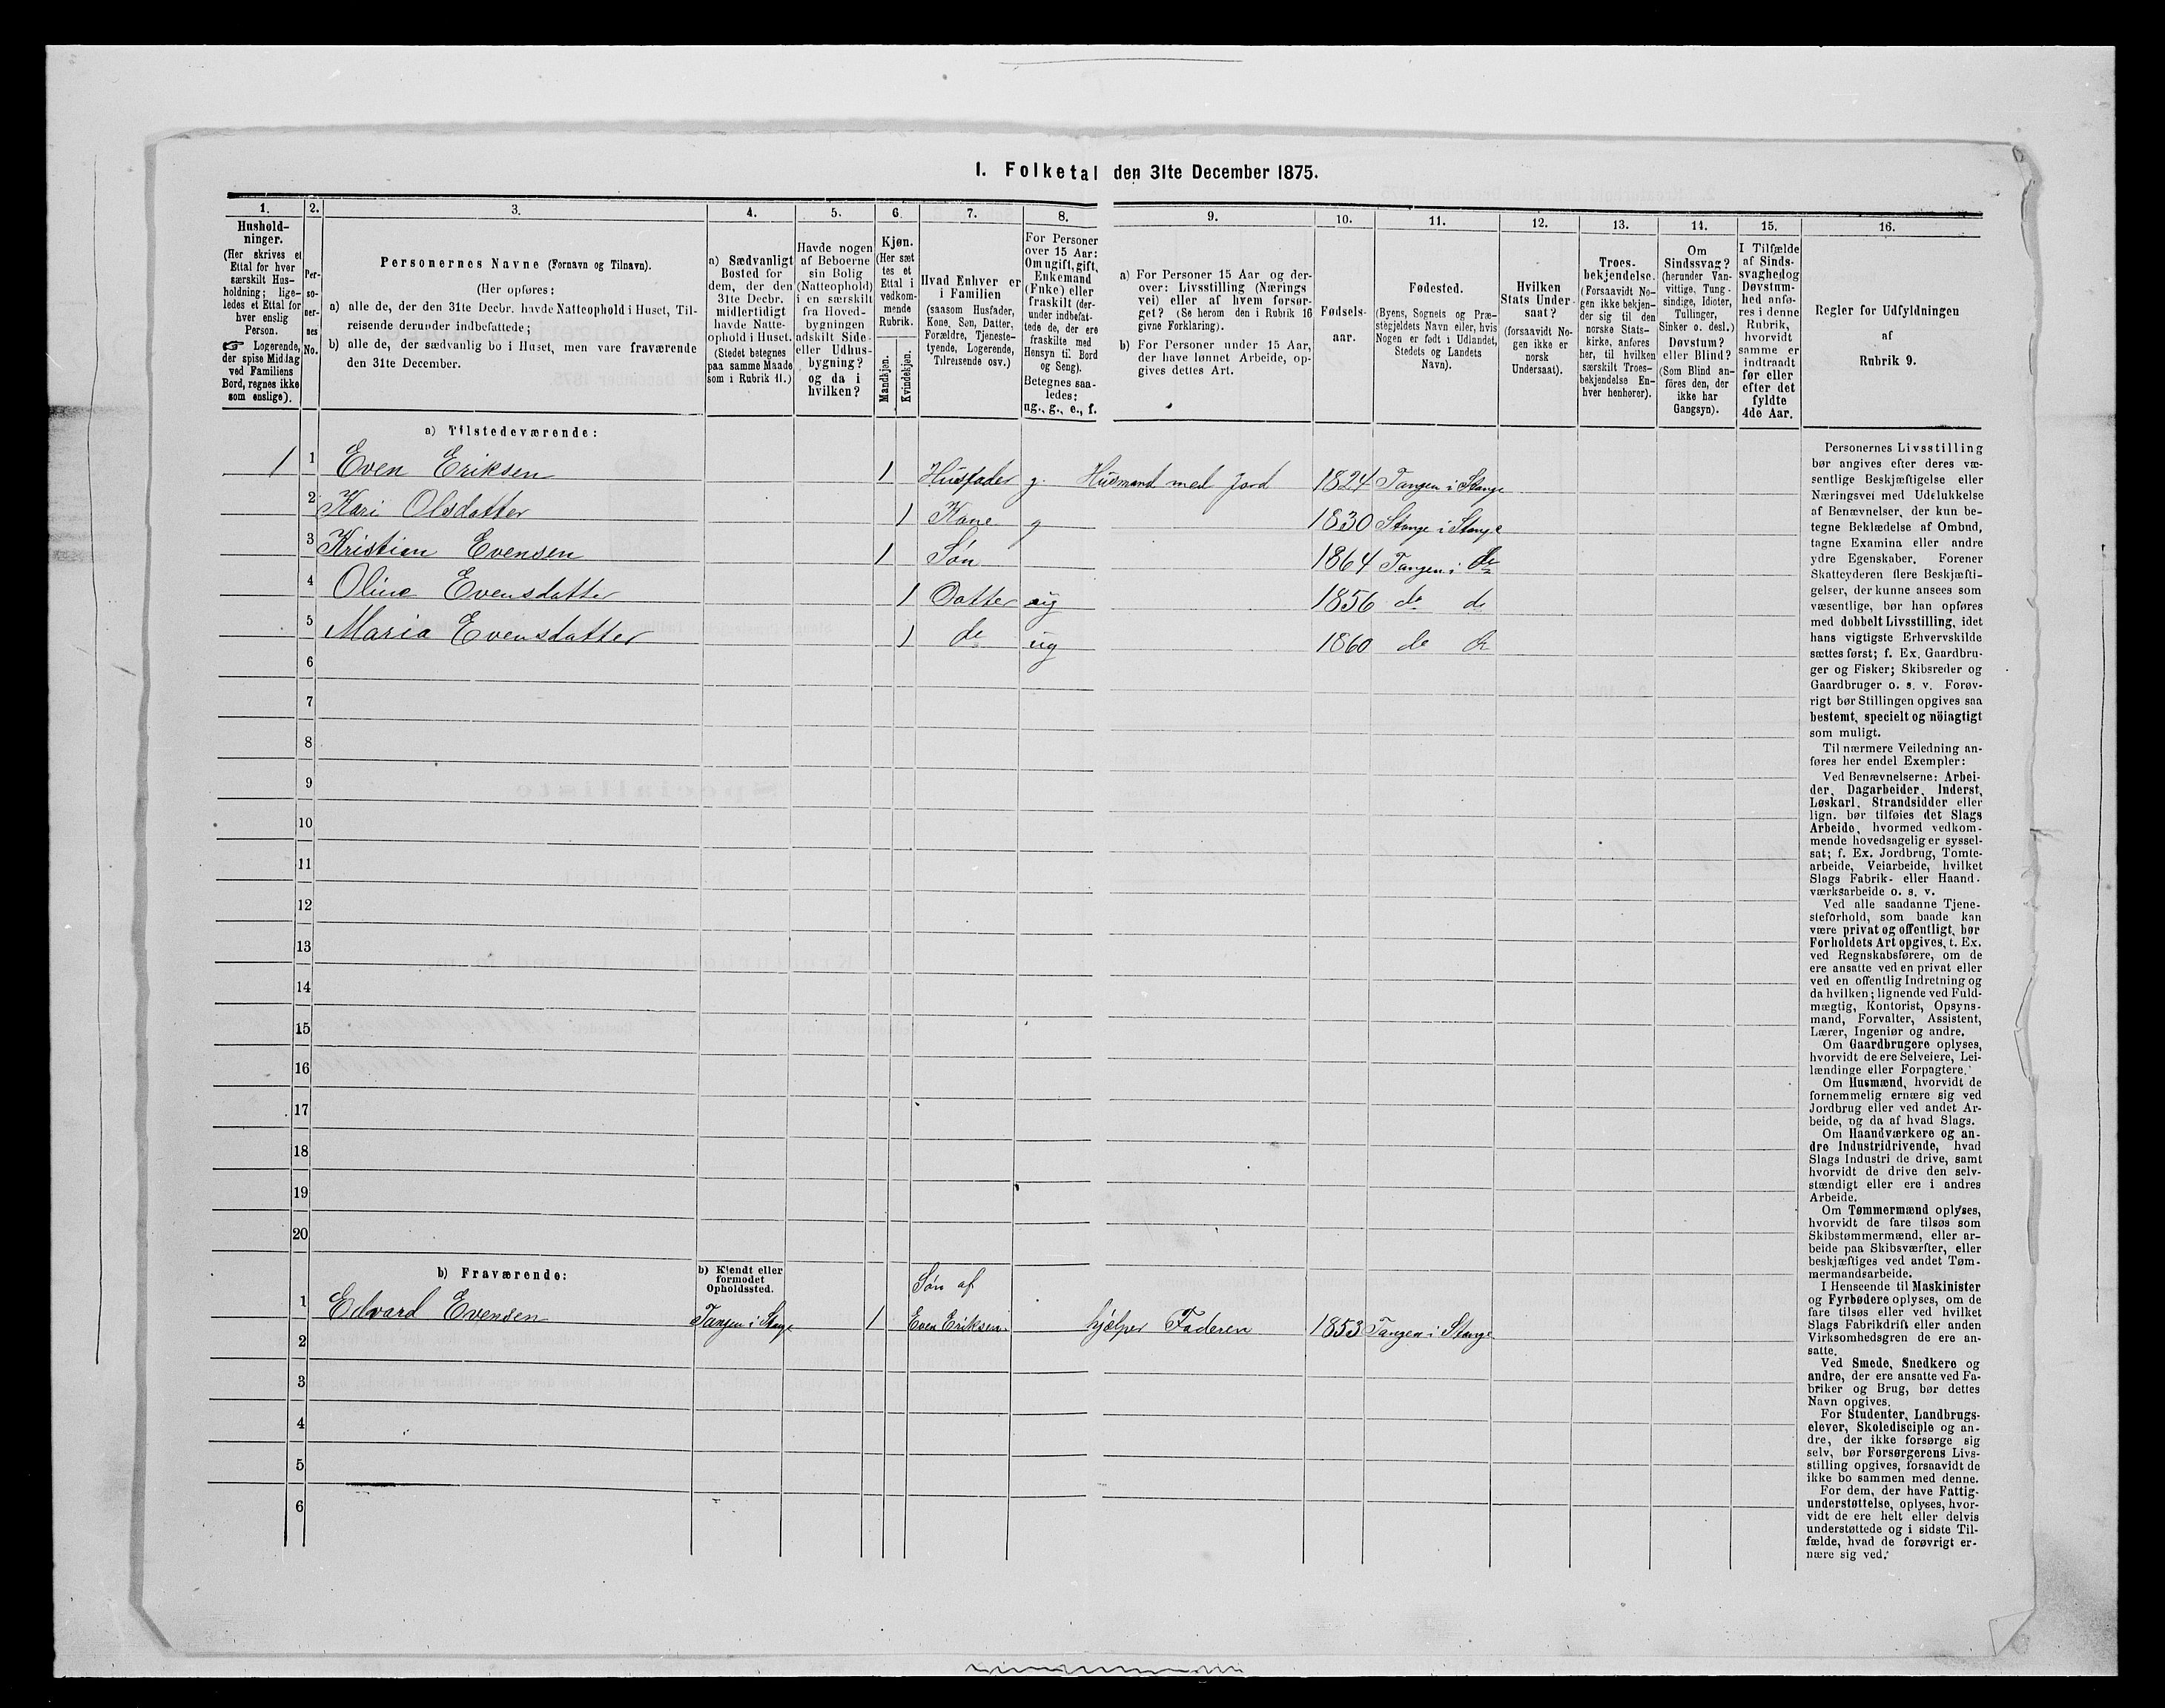 I. Folketal den 31te December 1875.
1. 2. 3. 4. 5. 6. 7. 8. 9. 10. 11. 12. 13. 14. 15. 16.
Hushold-
ninger.
(Her skrives et
Ettal for hver
særskilt Hus-
holdning; lige-
ledes et Ettal for
hver enslig
Person.
☞ Logerende,
der spise Middag
ved Familiens
Bord, regnes ikke
som enslige).
Per-
so-
ner-
nes
No.
Personernes Navne (Fornavn og Tilnavn).
(Her opføres:
a) alle de, der den 31te Decbr. havde Natteophold i Huset, Til-
reisende derunder indbefattede;
b) alle de, der sædvanlig bo i Huset, men vare fraværende
den 31te December.
a) Sædvanligt
Bosted for
dem, der den
31te Decbr.
midlertidigt
havde Natte-
ophold i Huset.
(Stedet betegnes
paa samme Maade
som i Rubrik 11.)
Havde nogen
af Beboerne
sin Bolig
(Natteophold)
i en særskilt
fra Hoved-
bygningen
adskilt Side-
eller Udhus-
bygning?
og da i
hvilken?
Kjøn.
(Her sæt
tes et
Ettal i
vedkom-
mende
Rubrik.
Mandkjøn.
Kvindekjøn.
Hvad Enhver er
i Familien
(saasom Husfader,
Kone, Søn, Datter,
Forældre, Tjeneste-
tyende, Logerende,
Tilreisende osv.)
For Personer
over 15 Aar:
Om ugift, gift,
Enkemand
(Enke) eller
fraskilt (der-
under indbefat-
tede de, der ere
fraskilte med
Hensyn til Bord
og Seng).
Betegnes saa-
ledes:
ug., g., e., f.
a) For Personer 15 Aar og der-
over: Livsstilling (Nærings
vei) eller af hvem forsør-
get? (Se herom den i Rubrik 16
givne Forklaring).
b) For Personer under 15 Aar,
der have lønnet Arbeide, op-
gives dettes Art.
Fødsels-
aar.
Fødested.
(Byens, Sognets og Præ-
stegjeldets Navn eller, hvis
Nogen er født i Udlandet,
Stedets og Landets
Navn).
Hvilken
Stats Under-
saat?
(forsaavidt No-
gen ikke er
norsk
Undersaat).
Troes-
bekjendelse.
(Forsaavidt No-
gen ikke bekjen-
der sig til den
norske Stats-
kirke, anføres
her, til hvilken
særskilt Troes-
bekjendelse En-
hver henhører).
Om
Sindssvag?
(herunder Van-
vittige, Tung-
sindige, Idioter,
Tullinger,
Sinker o. desl.)
Døvstum?
eller Blind?
(Som Blind an-
føres den, der
ikke har
Gangsyn).
I Tilfælde
af Sinds-
svaghed og
Døvstum-
hed anfø-
res i denne
Rubrik,
hvorvidt
samme er
indtraadt
før eller
efter det
fyldte
4de Aar.
Regler for Udfyldningen
af
Rubrik 9.
a) Tilstedeværende:
1 1 Even Eriksen 1 Husfader g. Husmand med Jord 1824 Tangen i Stange
2 Kari Olsdatter 1 Kone g 1830 Stange i Stange
3 Kristian Evensen 1 Søn 1864 Tangen i do
4 Oline Evensdatter 1 Datter ug 1856 do do
5 Maria Evensdatter 1 do ug 1860 do do
6
7
8
9
10
11
12
13
14
15
16
17
18
19
20
b) Fraværende:
b) Kjendt eller
formodet
Opholdssted.
Søn af
1 Edvard Evensen Tangen i Stange 1 Even Eriksen hjælper Faderen 1853 Tangen i Stange
2
3
4
5
6
Personernes Livsstilling
bør angives efter deres væ-
sentlige Beskjæftigelse eller
Næringsvei med Udelukkelse
af Benævnelser, der kun be-
tegne Beklædelse af Ombud,
tagne Examina eller andre
ydre Egenskaber. Forener
Skatteyderen flere Beskjæfti-
gelser, der kunne ansees som
væsentlige, bør han opføres
med dobbelt Livsstilling, idet
hans vigtigste Erhvervskilde
sættes først; f. Ex. Gaardbru-
ger og Fisker; Skibsreder og
Gaardbruger o. s. v. Forøv-
rigt bør Stillingen opgives saa
bestemt, specielt og nöiagtigt
som muligt.
Til nærmere Veiledning an-
føres her endel Exempler:
Ved Benævnelserne: Arbei-
der, Dagarbeider, Inderst,
Løskarl, Strandsidder eller
lign. bør tilføies det Slags
Arbeide, hvormed vedkom-
mende hovedsagelig er syssel-
sat; f. Ex. Jordbrug, Tomte-
arbeide, Veiarbeide, hvilket
Slags Fabrik- eller Haand-
værksarbeide o. s. v.
Ved alle saadanne Tjene-
steforhold, som baade kan
være privat og offentligt, bør
Forholdets Art opgives, t. Ex.
ved Regnskabsførere, om de
ere ansatte ved en privat eller
ved en offentlig Indretning og
da hvilken; lignende ved Fuld-
mægtig, Kontorist, Opsyns-
mand, Forvalter, Assistent,
Lærer, Ingeniør og andre.
Om Gaardbrugere oplyses,
hvorvidt de ere Selveiere, Lei-
lændinge eller Forpagtere.
Om Husmænd, hvorvidt de
fornemmelig ernære sig ved
Jordbrug eller ved andet Ar-
beide, og da af hvad Slags.
Om Haandværkere og an-
dre Industridrivende, hvad
Slags Industri de drive, samt
hvorvidt de drive den selv-
stændigt eller ere i andres
Arbeide.
Om Tømmermænd oplyses,
hvorvidt de fare tilsøs som
Skibstømmermænd, eller ar-
beide paa Skibsværfter, eller
beskjæftiges ved andet Tøm-
mermandsarbeide.
I Henseende til Maskinister
og Fyrbødere oplyses, om de
fare tilsøs eller ved hvilket
Slags Fabrikdrift eller anden
Virksomhedsgren de ere an-
satte.
Ved Smede, Snedkere og
andre, der ere ansatte ved Fa-
briker og Brug, bør dettes
Navn opgives.
For Studenter, Landbrugs-
elever, Skoledisciple og an-
dre, der ikke forsørge sig
selv, bør Forsørgerens Livs-
stilling opgives, forsaavidt de
ikke bo sammen med denne.
For dem, der have Fattig-
understøttelse, oplyses, hvor-
vidt de ere helt eller delvis
understøttede og i sidste Til-
fælde, hvad de forøvrigt er-
nære sig ved.